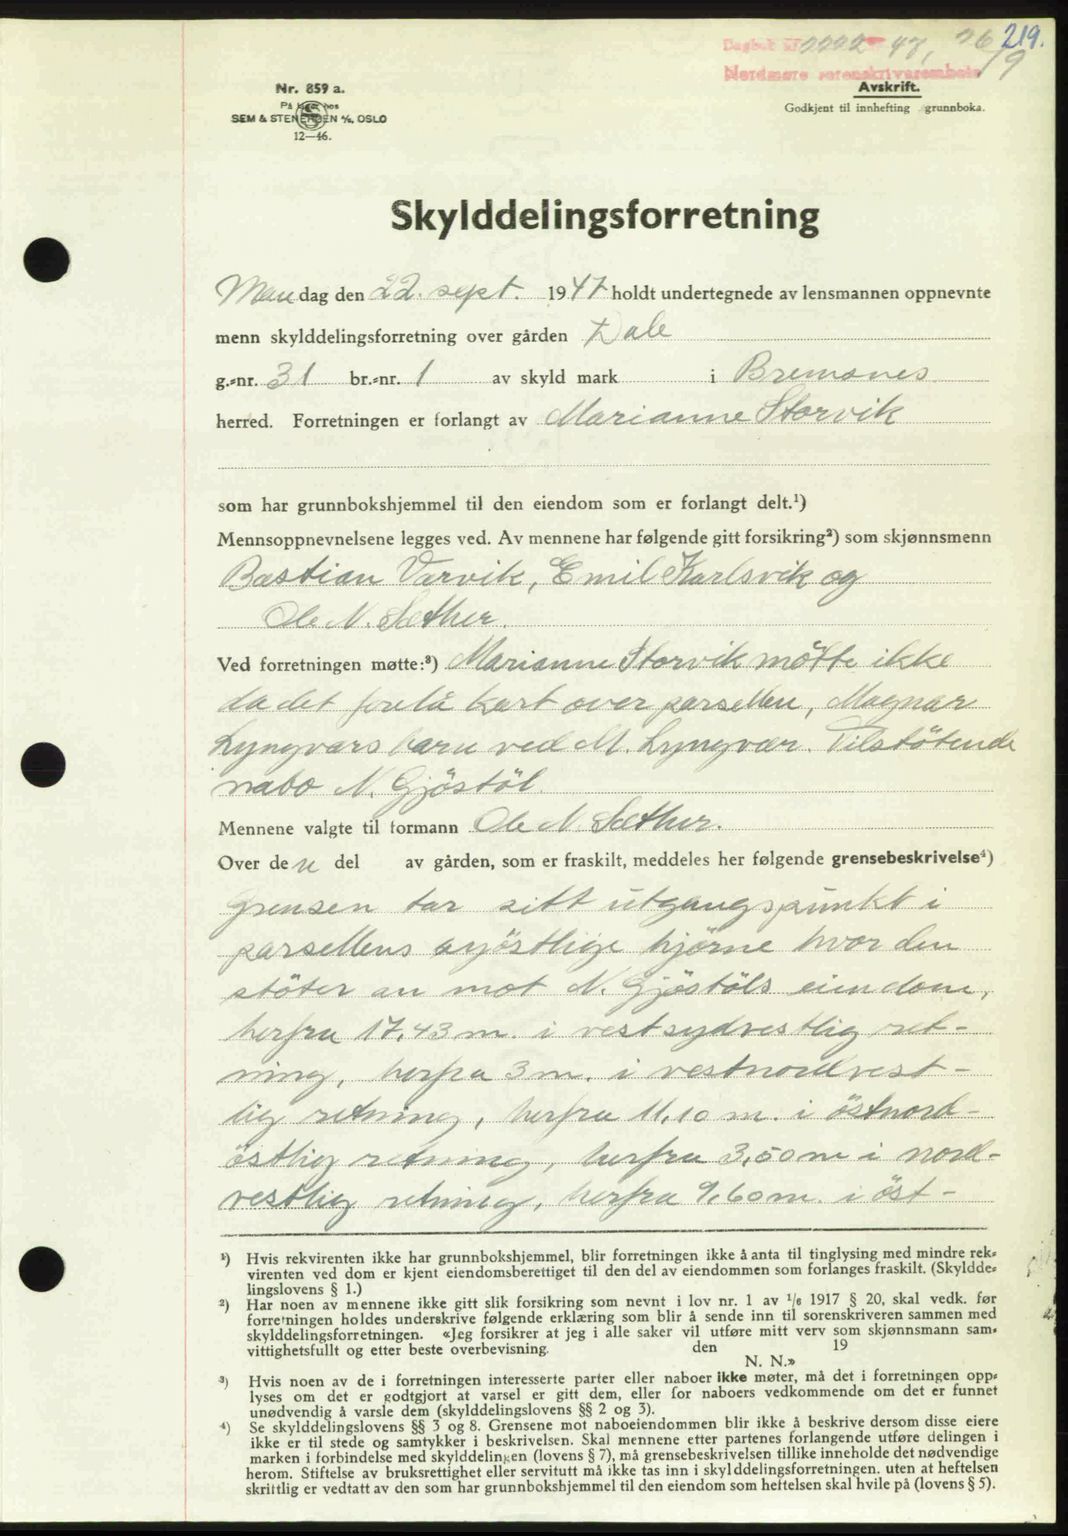 219.
Dagbok nr. 2222 47, 26/9
Nordmøre sorenskriverembete
Avskrift.
Godkjent til innhefting grunnboka.
Nr. 859 a.
På lager hos
SEM & STENERSEN A/S, OSLO
12—46.
Skylddelingsforretning
Mandag den 22. sept. 1947 holdt undertegnede av lensmannen oppnevnte
menn skylddelingsforretning over gården Dale
g.-nr. 31 br.-nr. 1 av skyld mark i Bremsnes
herred. Forretningen er forlangt av Marianne Storvik
som har grunnbokshjemmel til den eiendom som er forlangt delt.¹)
Mennsoppnevnelsene legges ved. Av mennene har følgende gitt forsikring²) som skjønnsmenn
Bastian Varvik, Emil Karlsvik og
Ole N. Sæther.
Ved forretningen møtte:³) Marianne Storvik møtte ikke
da det forelå kart over parsellen, Magnar
Lyngværs barn ved M. Lyngvær. Tilstötende
nabo N. Gjöstöl.
Mennene valgte til formann Ole N. Sæther.
Over den del av gården, som er fraskilt, meddeles her følgende grensebeskrivelse⁴)
Grensen tar sitt utgangspunkt i
parsellens syöstlige hjørne hvor den
stöter an mot N. Gjöstöls eiendom,
herfra 17,43 m. i vestsydvestlig ret-
ning, herfra 3 m. i vestnordvest-
lig retning, herfra 11,10 m. i östnord-
östlig retning, herfra 3,50 m i nord-
vestlig retning, herfra 9,60 m. i öst-
¹) Hvis rekvirenten ikke har grunnbokshjemmel, blir forretningen ikke å anta til tinglysing med mindre rek-
virenten ved dom er kjent eiendomsberettiget til den del av eiendommen som forlanges fraskilt. (Skyldde-
lingslovens § 1.)
²) Har noen av mennene ikke gitt slik forsikring som nevnt i lov nr. 1 av 1/6 1917 § 20, skal vedk. før
forretningen holdes underskrive følgende erklæring som blir å sende inn til sorenskriveren sammen med
skylddelingsforretningen. «Jeg forsikrer at jeg i alle saker vil utføre mitt verv som skjønnsmann sam-
vittighetsfullt og etter beste overbevisning. den 19
N. N.»
³) Hvis noen av de i forretningen interesserte parter eller naboer ikke møter, må det i forretningen opp-
lyses om det er godtgjort at varsel er gitt dem, eller for naboers vedkommende om det er funnet
unødvendig å varsle dem (skylddelingslovens §§ 2 og 3).
⁴) Se skylddelingslovens §§ 3 og 8. Grensene mot naboeiendommen blir ikke å beskrive dersom disse eiere
ikke er til stede og samtykker i beskrivelsen. Skal mennene etter partenes forlangende utføre delingen i
marken i forbindelse med skylddelingen (lovens § 7), må grensebeskrivelsen tillike inneholde det nødvendige
herom. Stiftelse av bruksrettighet eller servitutt må ikke tas inn i skylddelingsforretningen. uten at heftelsen
skriftlig er vedtatt av den som har grunnbokshjemmel til den eiendom som heftelsen skal hvile på (lovens § 5).